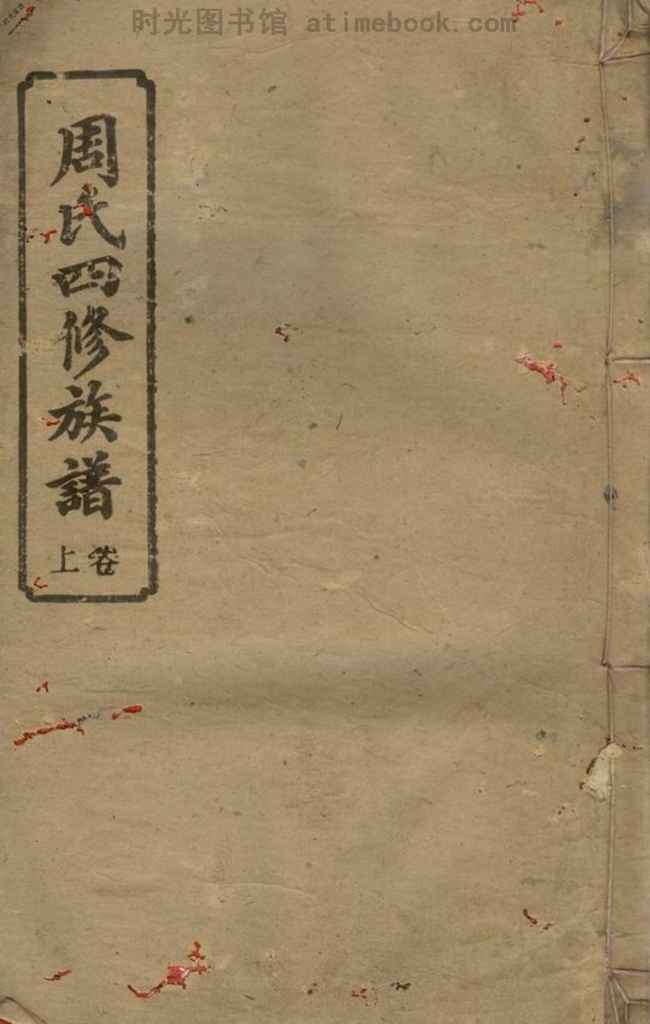 时光图书馆 atimebook.com
周氏四修族譜
卷上